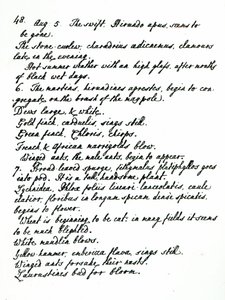 48. Aug. 5. The swift, Hirundo apus, seems to
be gone.
The stone-curlew, charadrius oedicnemus, clamours
late in the evening.
Hot summer weather with an high glass, after months
of black wet days.
6. The martins, hirundines agrestes, begin to con-
gregate on the brush of the maypole.
Dews large, & white.
Gold finch, carduelis, sings still.
Green finch, Chloris, chirps.
French & African marigolds blow.
Winged ants, the male ants, begin to appear.
7. Broad leaved spurge, tithymalus platyphyllos goes
into pod. It is a tall handsome plant.
Lychnidea, Phlox foliis lineari-lanceolatis, caule
elatior, floribus in longam spicam dense spicatis,
begins to flower.
Wheat is beginning to be cut: in many fields it seems
to be much blighted.
White nundlia blows.
Yellow hammer, emberiza flava, sings still.
Winged ants forsake their nests.
Laurustines bud for bloom.